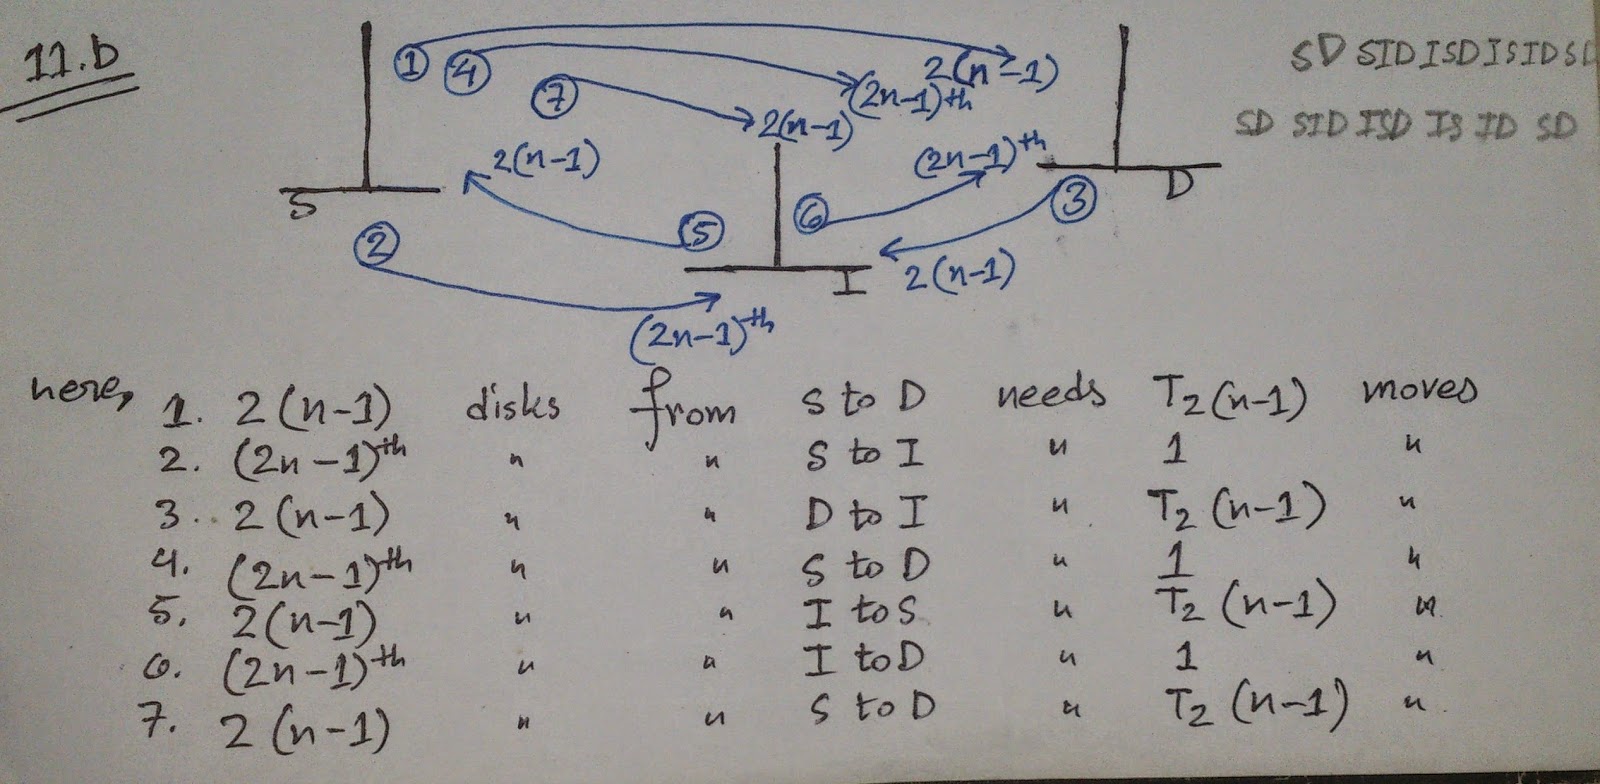 11.b
SD SID ISD IS ID SD
SD SID ISD IS ID SD
① ④ ⑦ 2(n-1)
(2n-1)th
2(n-1)
2(n-1)
(2n-1)th
S
D
② ⑤ ⑥ ③
I
2(n-1)
(2n-1)th
here, 1. 2(n-1) disks from S to D needs T2(n-1) moves
2. (2n-1)th " " S to I " 1 "
3. 2(n-1) " " D to I " T2(n-1) "
4. (2n-1)th " " S to D " 1 "
5. 2(n-1) " " I to S " T2(n-1) "
6. (2n-1)th " " I to D " 1 "
7. 2(n-1) " " S to D " T2(n-1) "